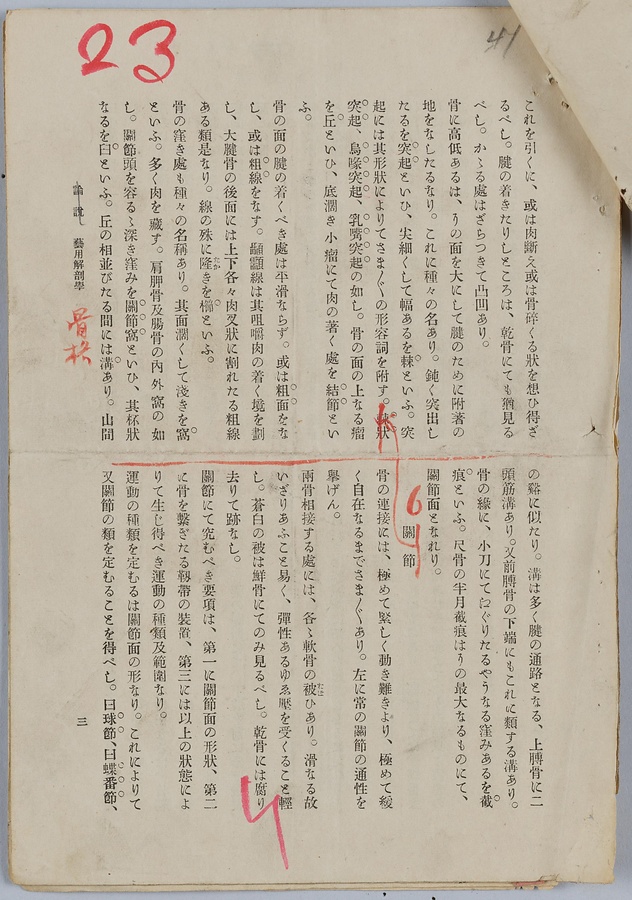 23
41
これを引くに、或は肉斷え或は骨碎くる狀を想ひ得ざ
るべし。腱の着きたりしところは、乾骨にても猶見る
べし。かゝる處はざらつきて凸凹あり。
骨に高低あるは、その面を大にして腱のために附著の
地をなしたるなり。これに種々の名あり。鈍く突出し
たるを突起といひ、尖細くして幅あるを棘といふ。突
起には其形狀によりてさま〴〵の形容詞を附す。棘狀
突起、烏喙突起、乳嘴突起の如し。骨の面の上なる瘤
を丘といひ、底濶き小瘤にて肉の著く處を結節とい
ふ。
骨の面の腱の着くべき處は平滑ならず。或は粗面をな
し、或は粗線をなす。顳顬線は其咀嚼肉の着く境を劃
し、大腱骨の後面には上下各々肉叉狀に割れたる粗線
ある類是なり。線の殊に隆きを櫛といふ。
骨の窪き處も種々の名稱あり。其面濶くして淺きを窩
といふ。多く肉を藏す。肩胛骨及腸骨の內外窩の如
し。關節頭を容るゝ深き窪みを關節窩といひ、其杯狀
なるを臼といふ。丘の相並びたる間には溝あり。山間
論說 藝用解剖學
骨格
の谿に似たり。溝は多く腱の通路となる、上膊骨に二
頭筋溝あり。又前膊骨の下端にもこれに類する溝あり。
骨の緣に、小刀にてゑぐりたるやうなる窪みあるを截
痕といふ。尺骨の半月截痕はその最大なるものにて、
關節面となれり。
6
關節
骨の連接には、極めて緊しく動き難きより、極めて緩
く自在なるまでさま〴〵あり。左に常の關節の通性を
擧げん。
兩骨相接する處には、各〻軟骨の被ひあり。滑なる故
いざりあふこと易く、彈性あるゆゑ壓を受くること輕
し。蒼白の被は鮮骨にてのみ見るべし。乾骨には腐り
去りて跡なし。
關節にて究むべき要項は、第一に關節面の形狀、第二
に骨を繫ぎたる靱帶の裝置、第三には以上の狀態によ
りて生じ得べき運動の種類及範圍なり。
運動の種類を定むるは關節面の形なり。これによりて
又關節の類を定むることを得べし。曰球節、曰蝶番節、
三